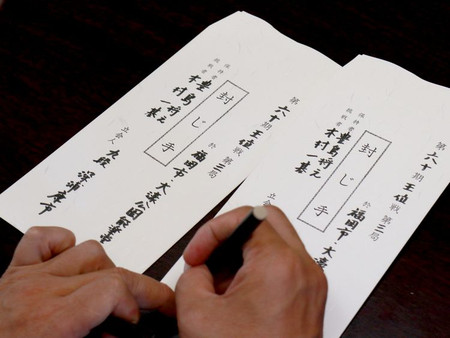 第六十期王位戦第三局
於 福岡市 大濠公園能楽堂
封じ手
保持者 豊島将之
挑戦者 木村一基
立会人 九段 深浦康市
第六十期王位戦第三局
於 福岡市 大濠
封じ手
保持者 豊島将之
挑戦者 木村一基
立会